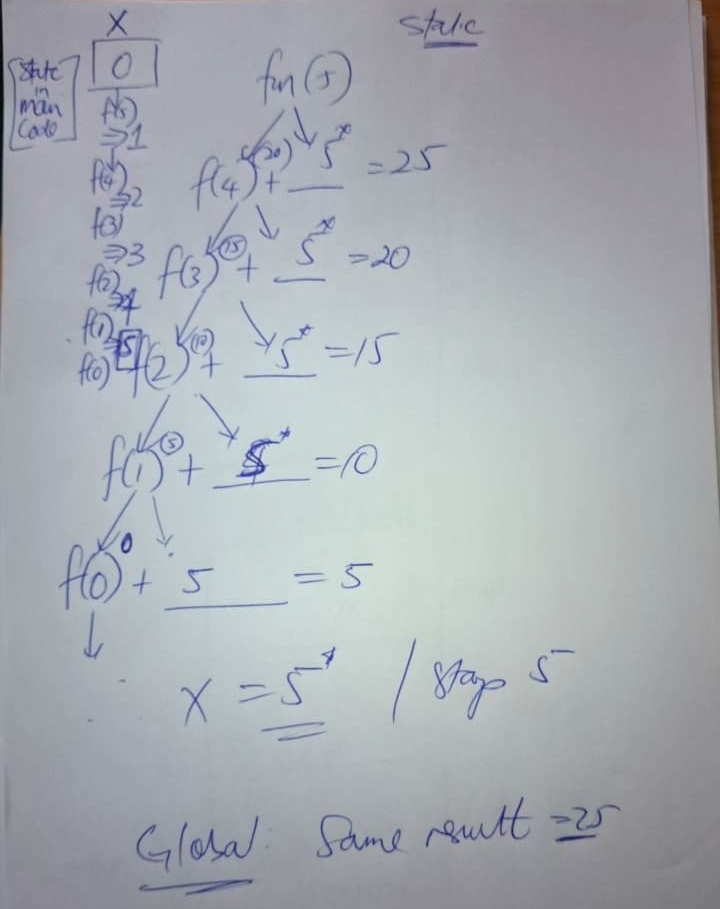 X
Static
0
fun(5)
[State in main Code]
f(5)
⇒1
f(4)
⇒2
f(3)
⇒3
f(2)
⇒4
f(1)
⇒5
f(0)
f(4)(20) + 5* = 25
f(3)(15) + 5* = 20
f(2)(10) + 5* = 15
f(1)(5) + 5* = 10
f(0)0 + 5 = 5
X = 5* / stays 5
Global: Same result = 25